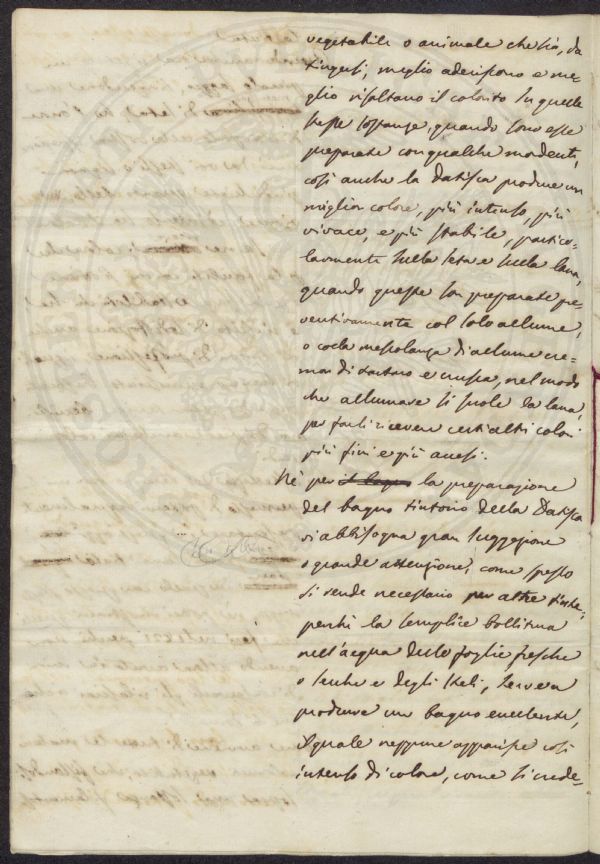 vegetabile o animale che sia, da
tingersi, meglio aderiscono e me-
glio risaltano il colorito in quelle
stesse sostanze, quando sono esse
preparate con qualche mordente,
così anche la Datisca produce un
miglior colore, più intenso, più
vivace, e più stabile, partico-
larmente sulla seta e sulla lana,
quando queste son preparate pre-
ventivamente col solo allume,
o colla mescolanza di allume cre-
mor di tartaro e crusca, nel modo
che allumare si suole la lana,
per farli ricevere certi altri colori
più fini e più accesi.
Nè per il bagno la preparazione
del bagno tintorio della Datisca
vi abbisogna gran suggezione
o grande attenzione, come spesso
si rende necessario per altre tinte;
perchè la semplice bollitura
nell'acqua delle foglie fresche
o secche e degli steli, serve a
produrre un bagno eccellente,
il quale neppure apparisce così
intenso di colore, come si crede-